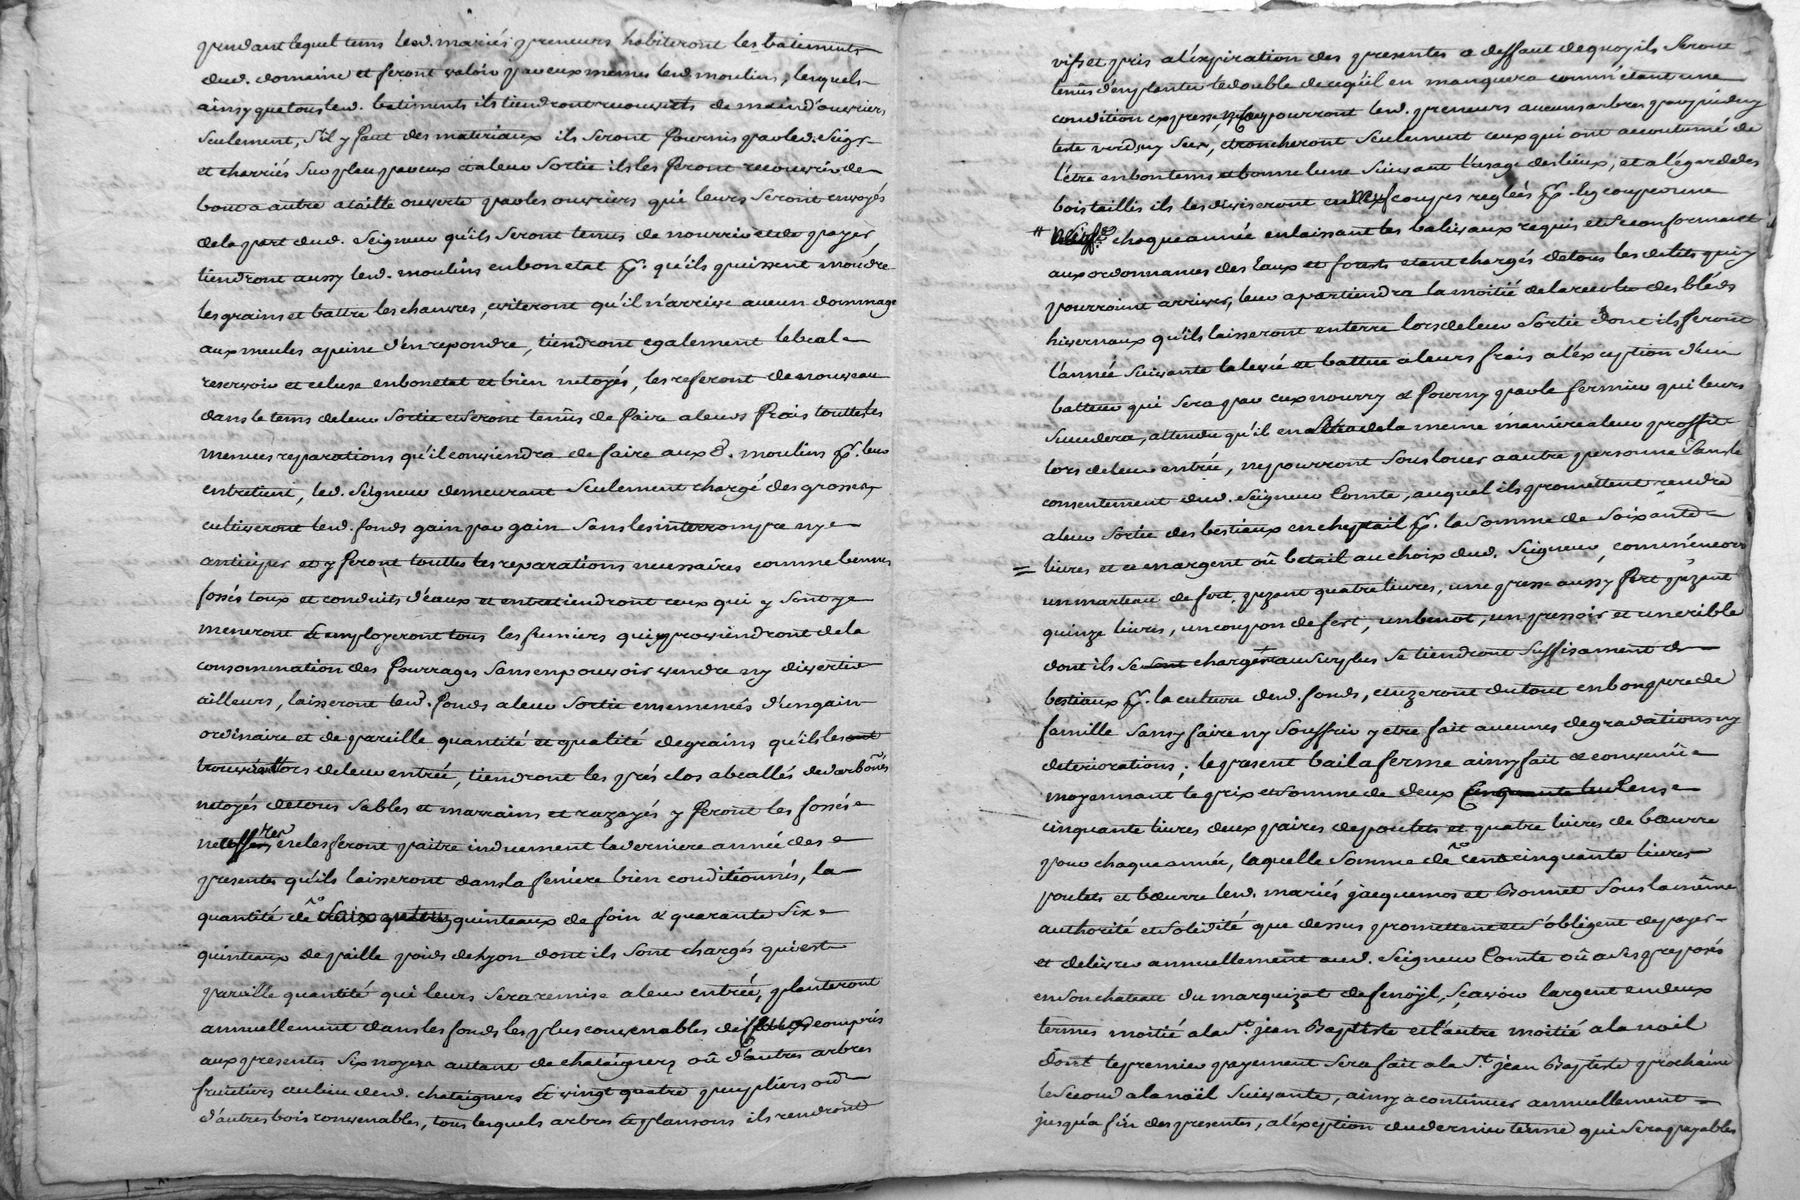 pendant lequel tems lesd. mariés preneurs habiteront les batiments
dud. domaine et feront valoir par eux memes lesd. moulins, lesquels
ainsy que tous lesd. batiments ils tiendront recouverts de main d'ouvriers
seulement, s'il y faut des materiaux ils seront fournis par led. Seigr
et charriés sur place par eux et a leur sortie ils les feront recouvrir de
bout a autre a taille ouverte par les ouvriers qui leurs seront envoyés
de la part dud. Seigneur qu'ils seront tenus de nourrir et de payer
tiendront aussy lesd. moulins en bon etat pr. qu'ils puissent moudre
les grains et battre les chanvres, eviteront qu'il n'arrive aucun dommage
aux meules a peine d'en repondre, tiendront egalement le beal
reservoir et ecluse en bon etat et bien netoyés, les referont de nouveau
dans le tems de leur sortie et seront tenus de faire a leurs frais touttes les
menues reparations qu'il conviendra de faire aux d. moulins pr. leur
entretient, led. Seigneur demeurant seulement chargé des grosses,
cultiveront lesd. fonds gain par gain sans les interrompre ny
anticiper et y feront touttes les reparations necessaires comme bennes
fossés toux et conduits d'eaux et entretiendront ceux qui y sont y
meneront et employeront tous les fumiers qui proviendront de la
consommation des fourrages sans en pouvoir vendre ny divertir
ailleurs, laisseront lesd. fonds a leur sortie ensemencés d'un gain
ordinaire et de pareille quantité et qualité de grains qu'ils les ont
trouvés lors de leur entrée, tiendront les prés clos
netoyés de tous sables et marrains et razayés y feront les fossés
necessres ne les feront paitre induement la derniere année des
presentes qu'ils laisseront dans la feniere bien conditionnés, la
quantité de quinteaux de foin & quarante six
quinteaux de paille poids de Lyon dont ils sont chargés qui est
pareille quantité qui leurs sera remise a leur entrée, planteront
annuellement dans les fonds les plus convenables compris
aux presentes six noyers autant de chataigners ou d'autres arbres
fruitiers au lieu desd. chataigners et vingt quatre peupliers ou
d'autres bois convenables, tous lesquels arbres et plansons ils rendront
vifs et pris a l'expiration des presentes a deffaut de quoy ils seront
tenus d'en planter le double de ce qu'il en manquera comme etant une
condition expresse, ne pourront lesd. preneurs aucuns arbres par pied ny
teste verd, ny sec, etroncheront seulement ceux qui ont accoutumé de
l'etre en bon tems et bonne lune suivant l'usage des lieux, et a l'egard des
bois taillis ils les diviseront en neuf coupes reglées pr. en couper une
chaque année en laissant les baliveaux requis et se conformant
aux ordonnances des Eaux et forests etant chargés de tous les delits qui y
pourroient arriver, leur apartiendra la moitié de la recolte des bléds
hivernaux qu'ils laisseront en terre lors de leur sortie dont ils feront
l'année suivante la levée et battue a leurs frais a l'exception d'un
batteur qui sera par eux nourry & fourny par le fermier qui leurs
succedera, attendu qu'il en sera de la meme maniere a leur proffit
lors de leur entrée, ny pourront souslouer a autre personne sans le
consentement dud. Seigneur Comte, auquel ils promettent rendre
a leur sortie des bestiaux en cheptail pr. la somme de soixante
= livres et ce en argent ou betail au choix dud. Seigneur, comme encore
un marteau de fert pezant quatre livres, une presse aussy fert pezant
quinze livres, un coupon de fert, un benot, un pressoir et un crible
dont ils se chargent au surplus se tiendront suffisament de
bestiaux pr. la culture desd. fonds, et uzeront du tout en bon pere de
famille sans y faire ny souffrir y etre fait aucunes degradations ny
deteriorations; le present bail a ferme ainsy fait & convenu
moyennant le prix et somme de deux cent
cinquante livres deux paires de poulets et quatre livres de boeurre
pour chaque année, laquelle somme de deux cent cinquante livres
poulets et boeurre lesd. mariés jacquemos et Bonnet sous la même
authorité et solidité que dessus promettent et s'obligent de payer
et delivrer annuellement aud. Seigneur Comte ou a ses preposés
en son chateau du marquizat de fenoÿl, scavoir l'argent en deux
termes moitié a la St. jean Baptiste et l'autre moitié a la noël
dont le premier payement sera fait a la St. jean Baptiste prochaine
le second a la noël suivante, ainsy a continuer annuellement
jusqu'a fin des presentes, a l'exception du dernier terme qui sera payables